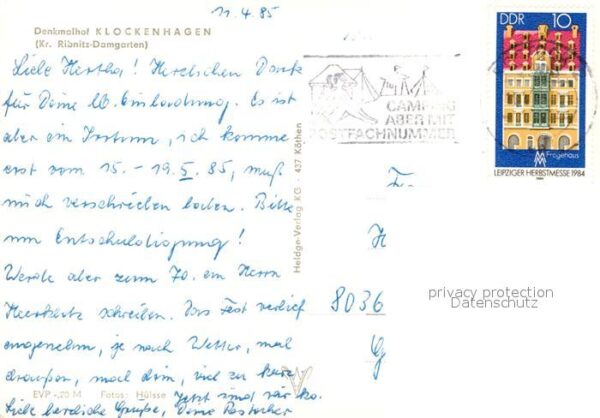 11.4.85
Denkmalhof KLOCKENHAGEN
(Kr. Ribnitz-Damgarten)
Liebe Hertha! Herzlichen Dank
für Deine lb. Einladung. Es ist
aber ein Irrtum, ich komme
erst vom 15. - 19. 5. 85, muß
mich verschrieben haben. Bitte
um Entschuldigung!
Werde aber zum 70. an Herrn
schreiben. Das Fest verlief
angenehm, je nach Wetter, mal
draußen, mal drin, viel zu kurz.
Jetzt sind wir
Liebe herzliche Grüße, Deine
EVP -,20 M Fotos: Hülsse
Heldge-Verlag KG · 437 Köthen
CAMPING
ABER MIT
POSTFACHNUMMER
DDR 10
Fregehaus
MM
LEIPZIGER HERBSTMESSE 1984
Fr.
H
8036
privacy protection
Datenschutz